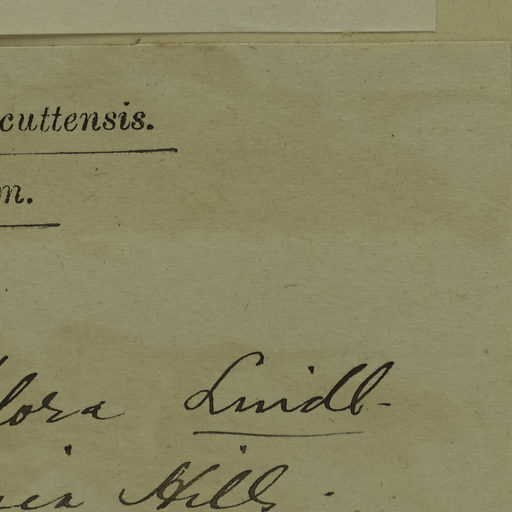 cuttensis.
m.
lora Lindl-
sia Hills.